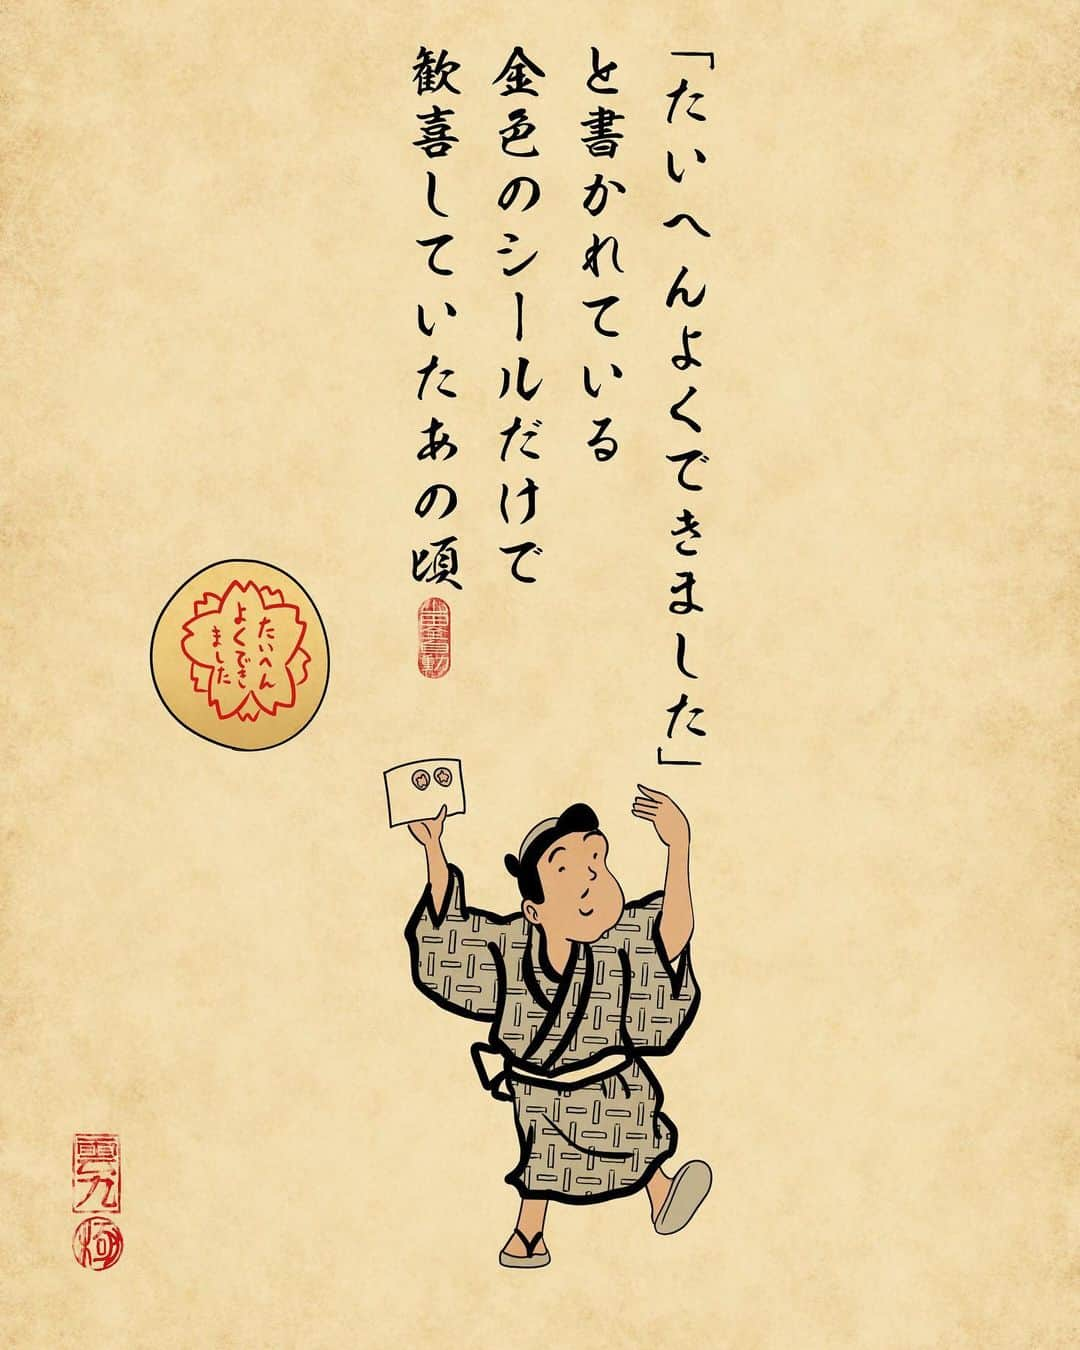 「たいへんよくできました」
と書かれている
金色のシールだけで
歓喜していたあの頃
たいへん
よくでき
ました